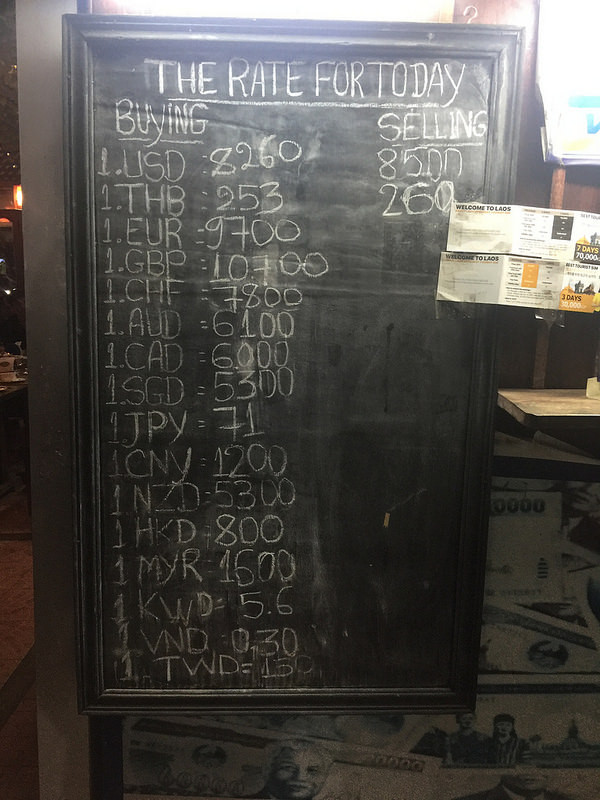 THE RATE FOR TODAY
BUYING SELLING
1.USD = 8260 8500
1.THB = 253 260
1.EUR = 9700
1.GBP = 10700
1.CHF = 7800
1.AUD = 6100
1.CAD = 6000
1.SGD = 5300
1JPY = 71
1CNY = 1200
1NZD = 5300
1HKD = 800
1MYR = 1600
1KWD = 5.6
1VND = 0,30
1. TWD = 150
WELCOME TO LAOS
7 DAYS
70,000
WELCOME TO LAOS
BEST TOURIST SIM
3 DAYS
30,000
0000